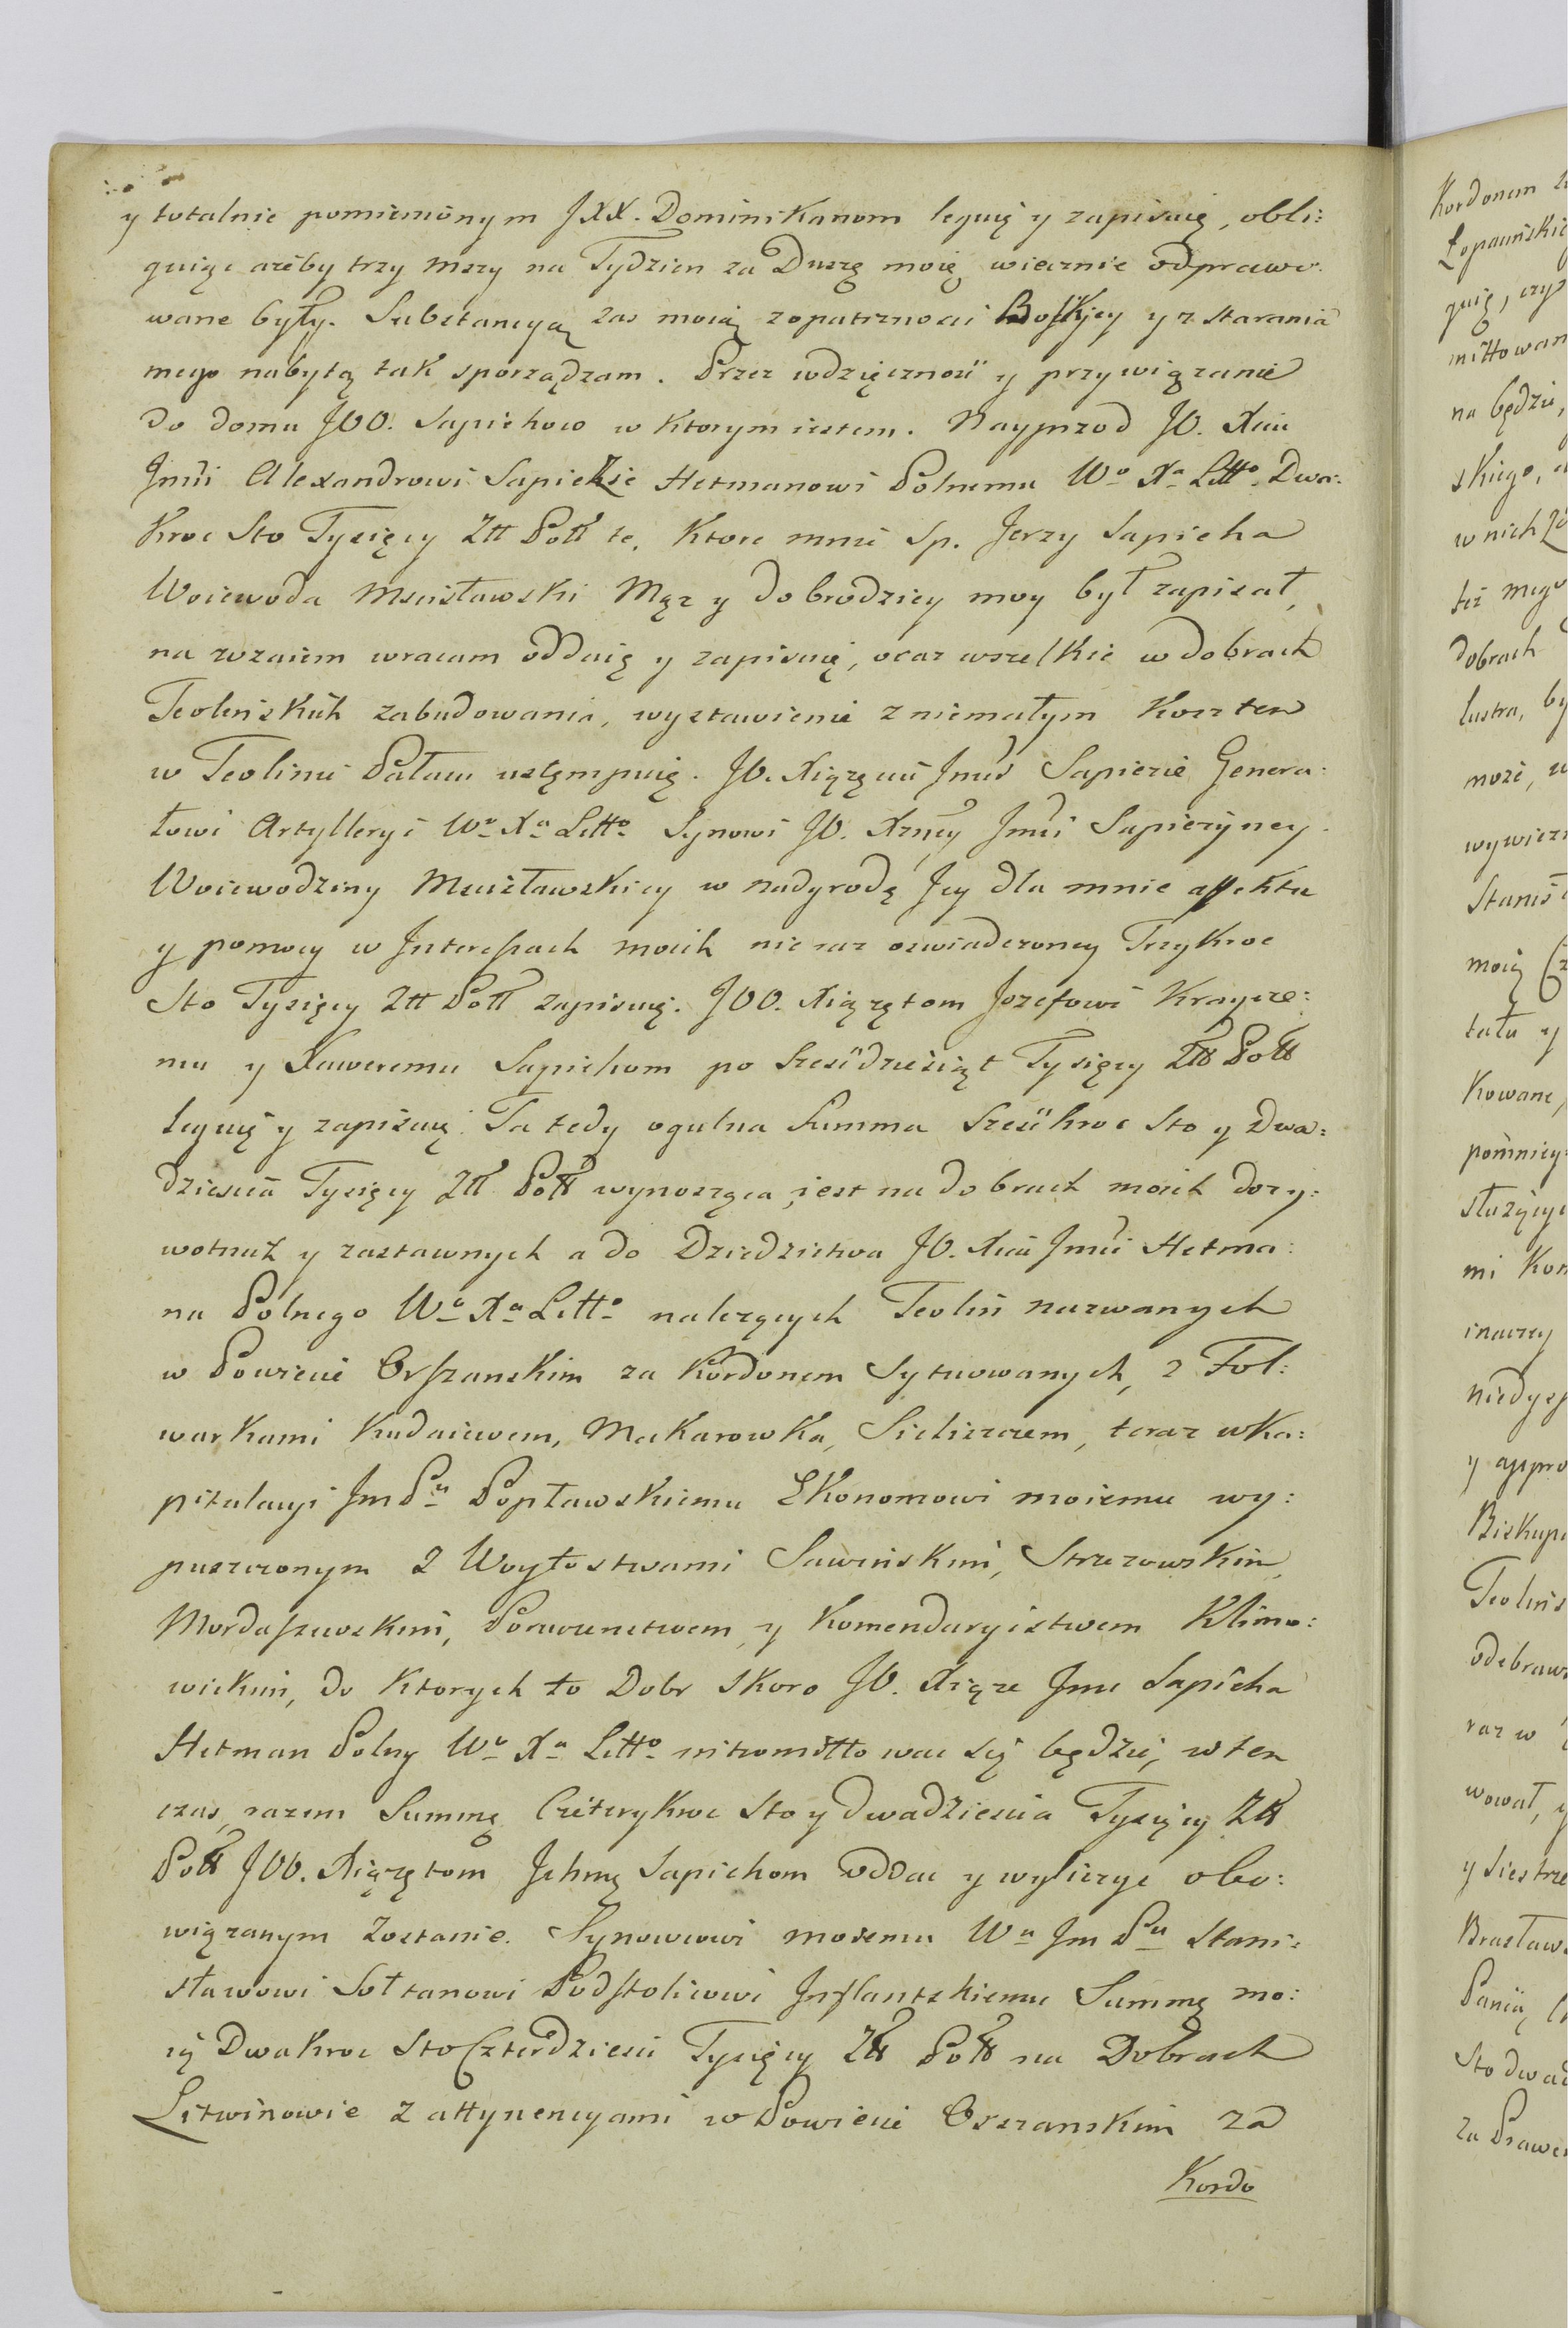 y totalnie pomienionym JXX. Dominikanom leguię y zapisuię, obli:
guiąc ażeby trzy mszy na Tydzien za Duszę moię wiecznie odprawo:
wane były. Substancyą zas moią z opatrznosci Boskiey y z starania
mego nabytą tak sporządzam. Przez wdzięcznosc y przywiązanie
do domu JOO. Sapiehow w ktorym iestem. Nayprzod JO. Xciu
Jmci Alexandrowi Sapiezie Hetmanowi Polnemu Wo Xa Litto Dwa:
kroc Sto Tysięcy Ztt Poll te, ktore mnie Sp. Jerzy Sapieha
Woiewoda Mscisławski Mąz y dobrodziey moy był zapisał,
na wzaiem wracam oddaię y zapisuię, oraz wszelkie w dobrach
Teolinskich zabudowania, wystawienie z niemałym kosztem
w Teolinie Pałacu ustęmpuię. JO. Xiązęciu Jmci Sapiezie Genera:
łowi Artylleryi Wo Xa Litto Synowi JO. Xzney Jmci Sapiezyney
Woiewodziny Mscisławskiey w nadgrodę Jey dla mnie affektu
y pomocy w Interessach moich nie raz oswiadczoney Trzykroc
Sto Tysięcy Ztt Poll zapisuię. JOO. Xiązętom Jozefowi Kraycze:
mu y Xaweremu Sapiehom po Szescdziesiąt Tysięcy Ztt Poll
leguię y zapisuię. Ta tedy ogulna Summa Szesckroc Sto y Dwa:
dziescia Tysięcy Ztt Poll wynosząca iest na dobrach moich dozy:
wotnich y zastawnych a do Dziedzictwa JO. Xcia Jmci Hetma:
na Polnego Wo Xa Litto nalezących Teolin nazwanych
w Powiecie Orszanskim za Kordonem Sytuowanych, z Fol:
warkami Kudaiewem, Makarowka, Sieliszczem, teraz w Ka:
pitulacyi Jm Pu Popławskiemu Ekonomowi moiemu wy:
puszczonym z Woytostwami Sawinskim,
Mordaszewskim, y Komendaryistwem Klimo:
wickim, do ktorych to Dobr skoro JO. Xiąze Jmc Sapieha
Hetman Polny Wo Xa Litto intromittowac się będzie, w ten
czas, razem Summę Czterykroc Sto y dwadziescia Tysięcy Ztt
Poll JOO. Xiązętom Jchmę Sapiehom oddac y wyliczyc obo:
wiązanym zostanie. Synowcowi moiemu Wu Jm Pu Stani:
sławowi Sołtanowi Podstoliwowi Inflantskiemu Summę mo:
ię Dwakroc Sto Czterdziesci Tysięcy Ztt Poll na Dobrach
Litwinowie z attynencyami w Powiecie Orszanskim za
Kordo